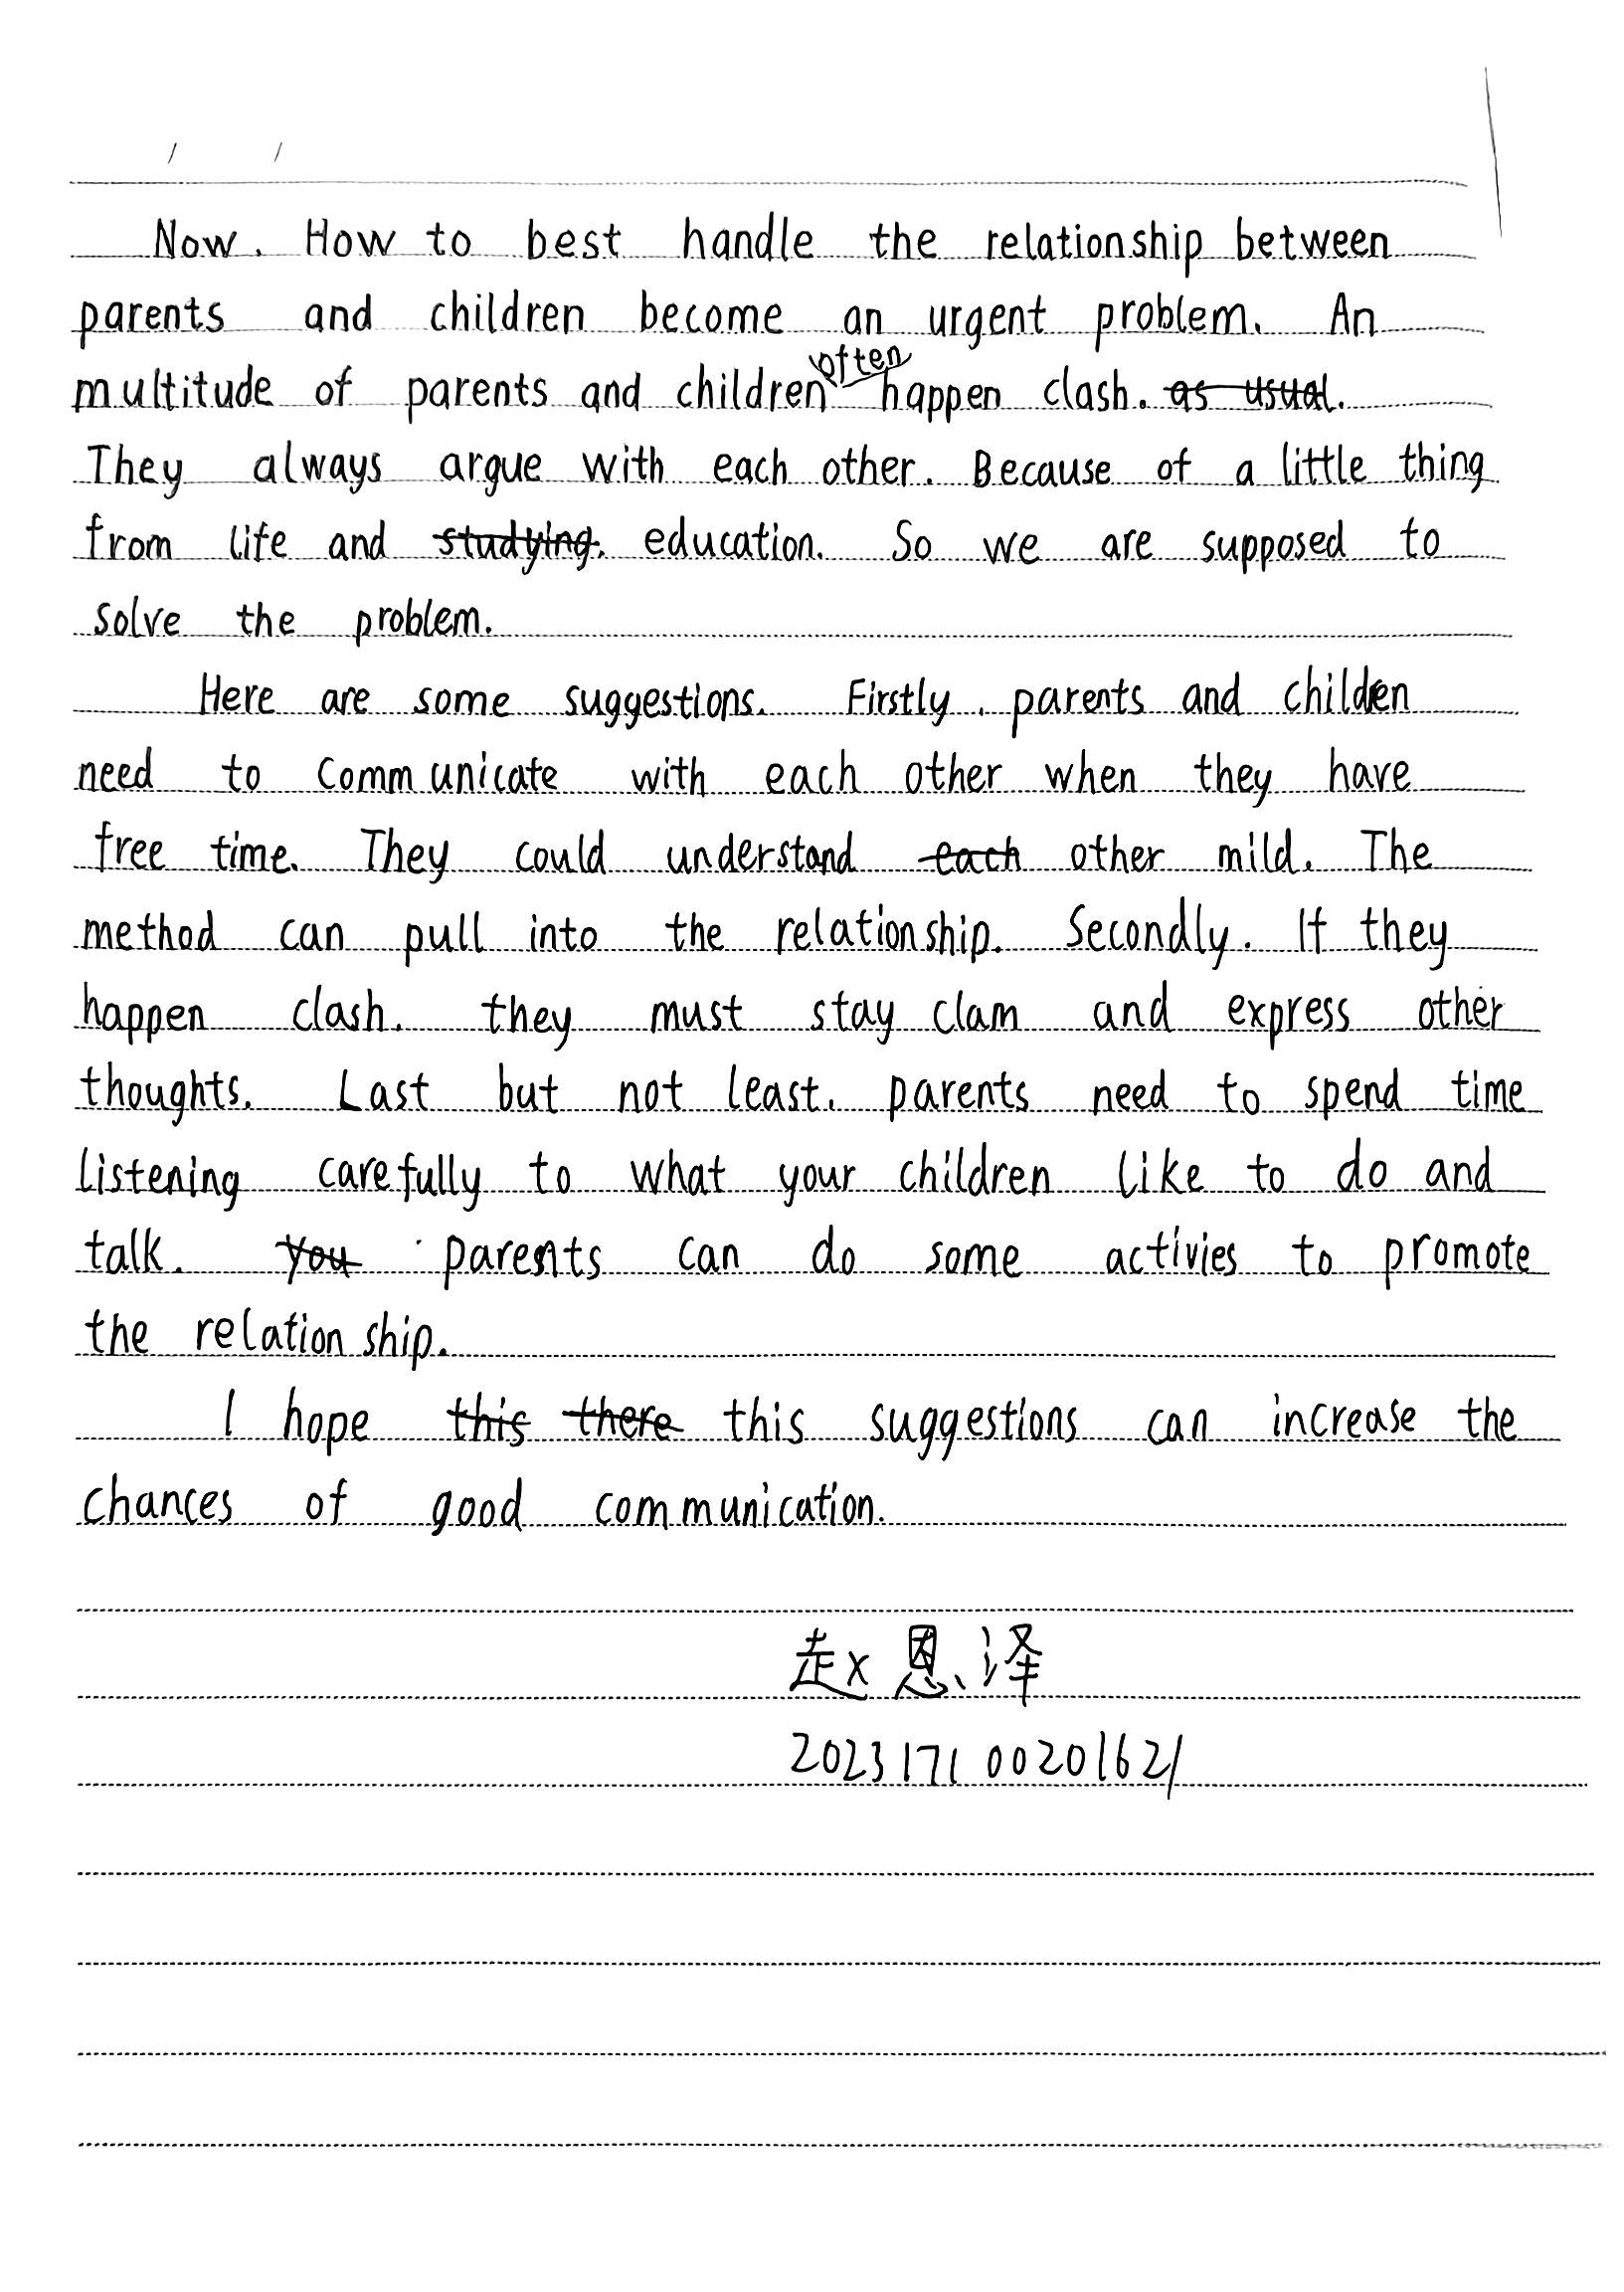 Now. How to best handle the relationship between
parents and children become an urgent problem. An
multitude of parents and children often happen clash. as usual.
They always argue with each other. Because of a little thing
from life and studying. education. So we are supposed to
solve the problem.
Here are some suggestions. Firstly. parents and children
need to communicate with each other when they have
free time. They could understand each other mild. The
method can pull into the relationship. Secondly. If they
happen clash. they must stay clam and express other
thoughts. Last but not least. parents need to spend time
listening carefully to what your children like to do and
talk. You parents can do some activies to promote
the relationship.
I hope this there this suggestions can increase the
chances of good communication.
赵恩泽
202317100201621